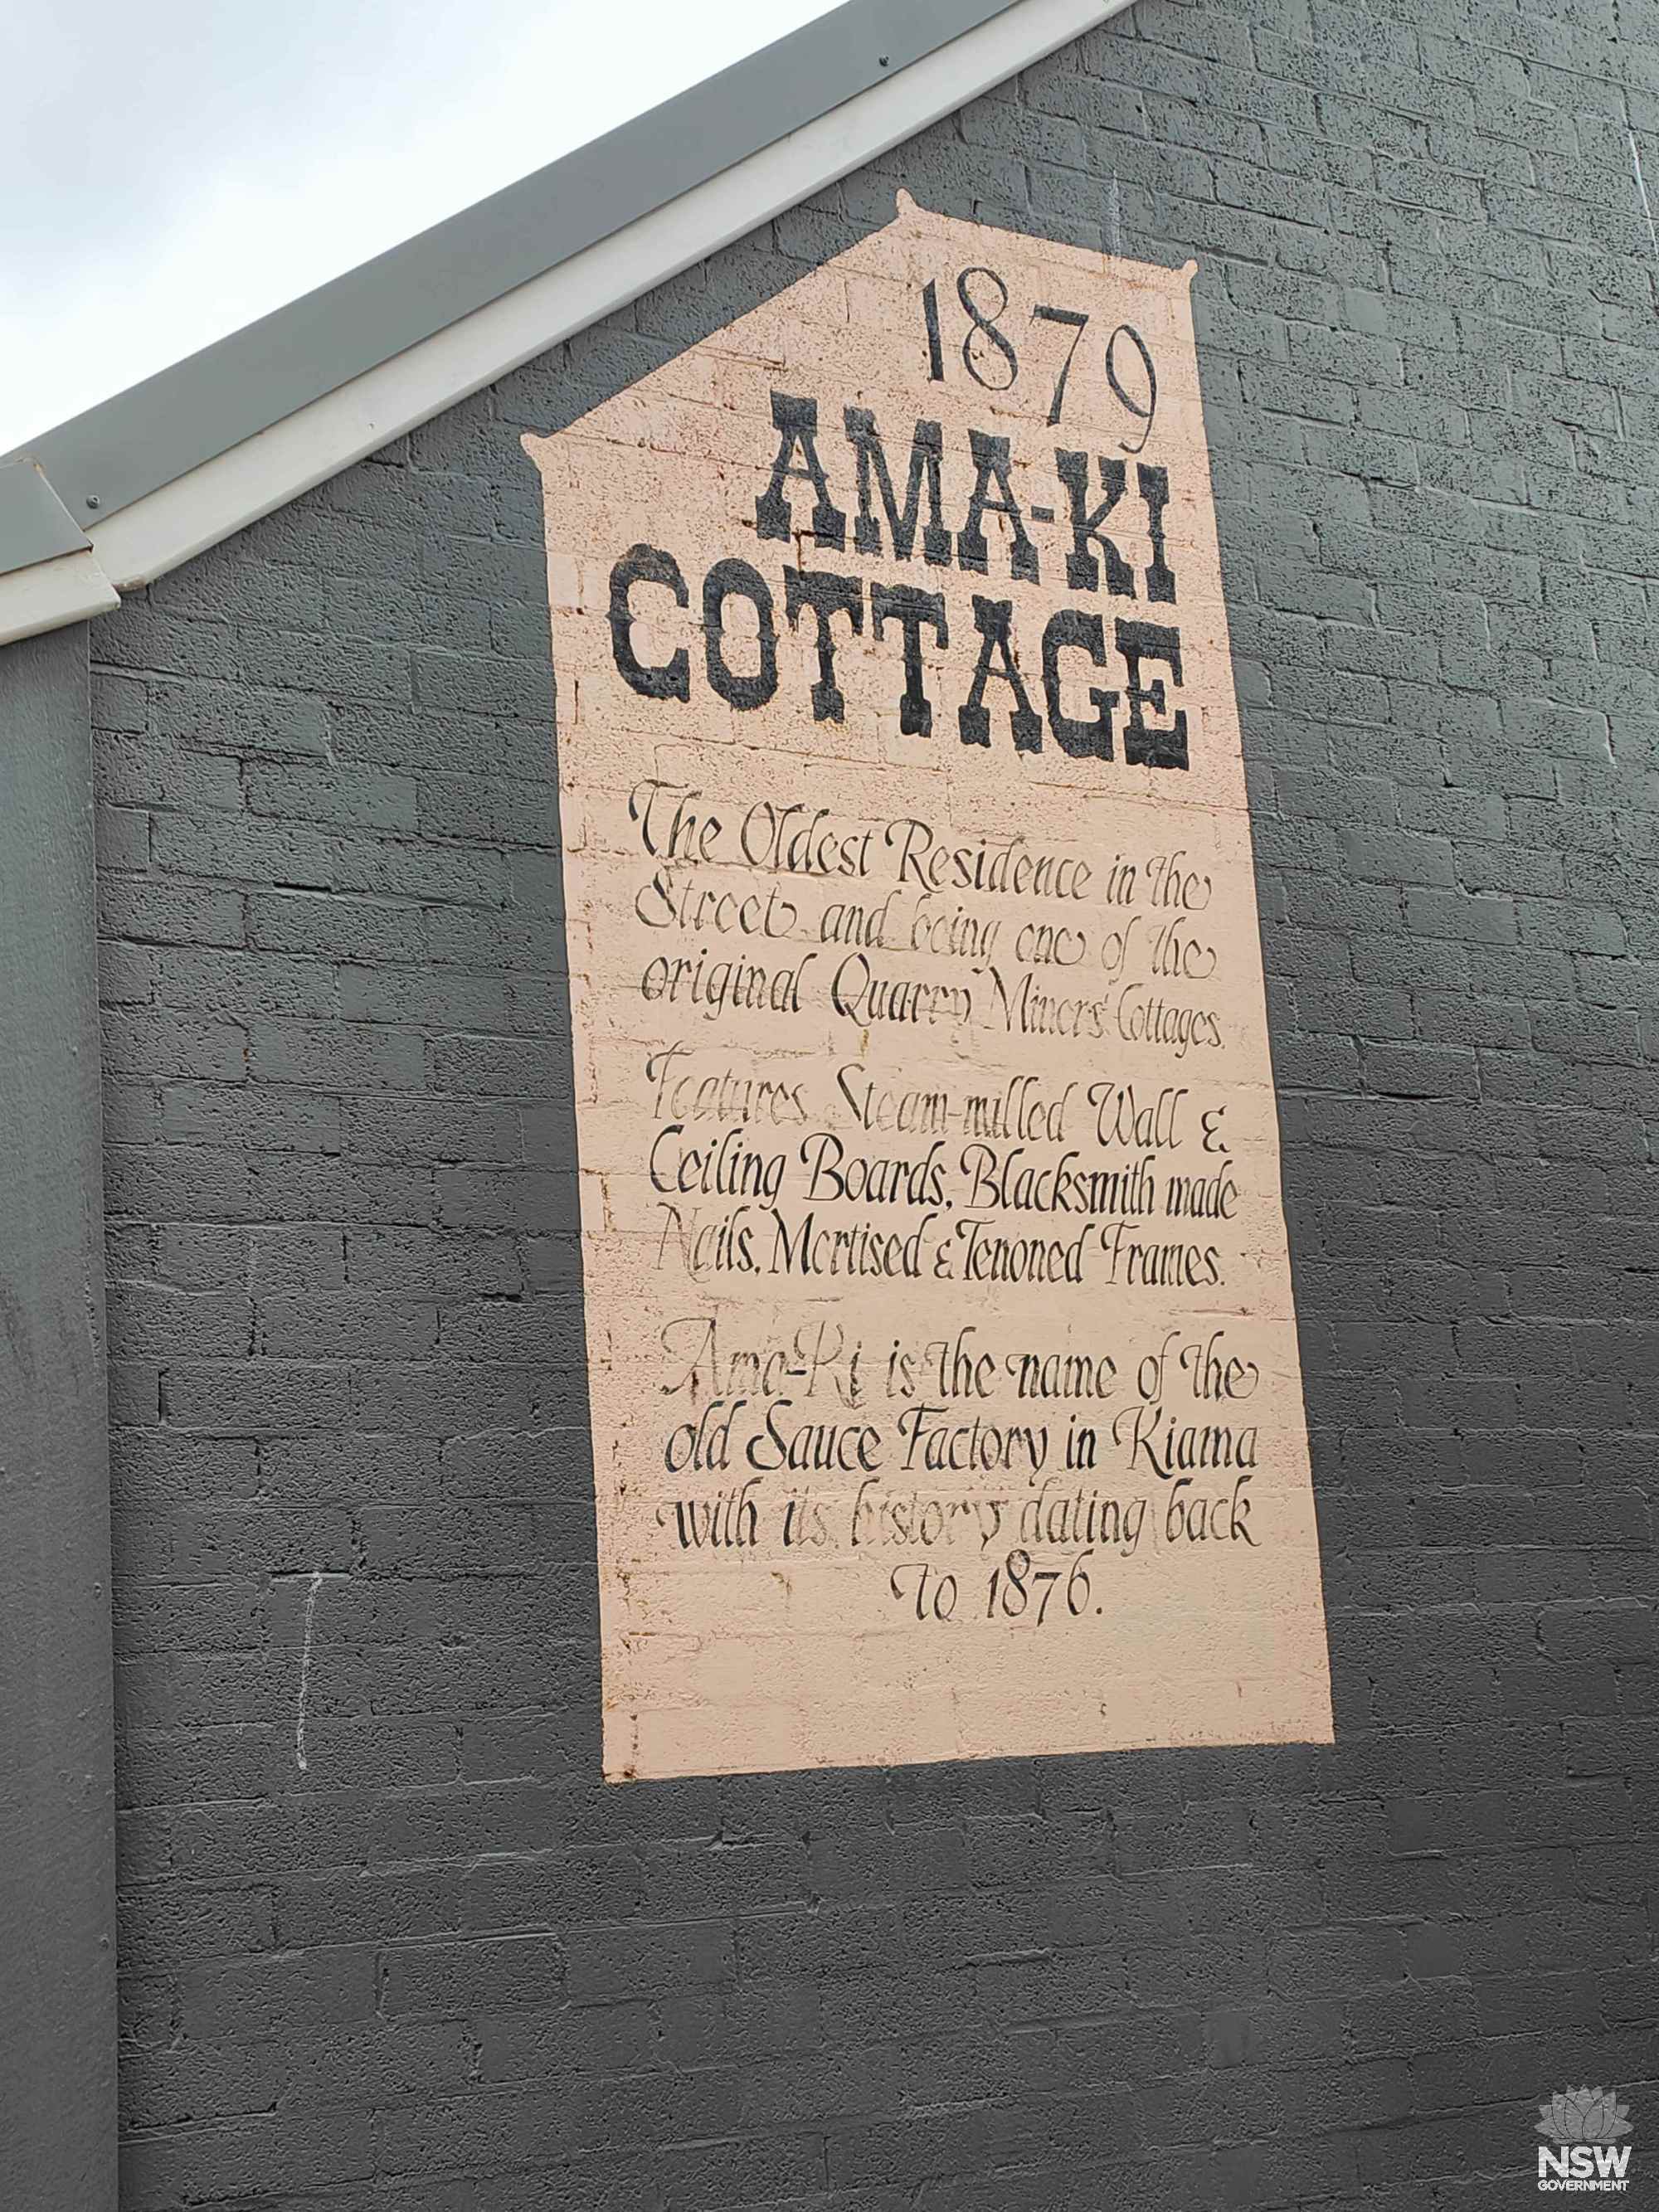 1879
AMA-KI
COTTAGE
The Oldest Residence in the
Street and being one of the
original Quarry Miners' Cottages.
Features Steam-milled Wall &
Ceiling Boards, Blacksmith made
Nails, Mortised & Tenoned Frames.
Ama-Ki is the name of the
old Sauce Factory in Kiama
with its history dating back
to 1876.
NSW
GOVERNMENT